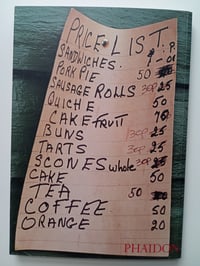 PRICE LIST P.
SANDWICHES. 1-01
PORK PIE 50
SAUSAGE ROLLS 30p 25
QUICHE 50
CAKE FRUIT 10
BUNS 30p 25
TARTS 30p 25
SCONES whole 30p 25
CAKE 50
TEA 50
COFFEE 50
ORANGE 20
PHAIDON